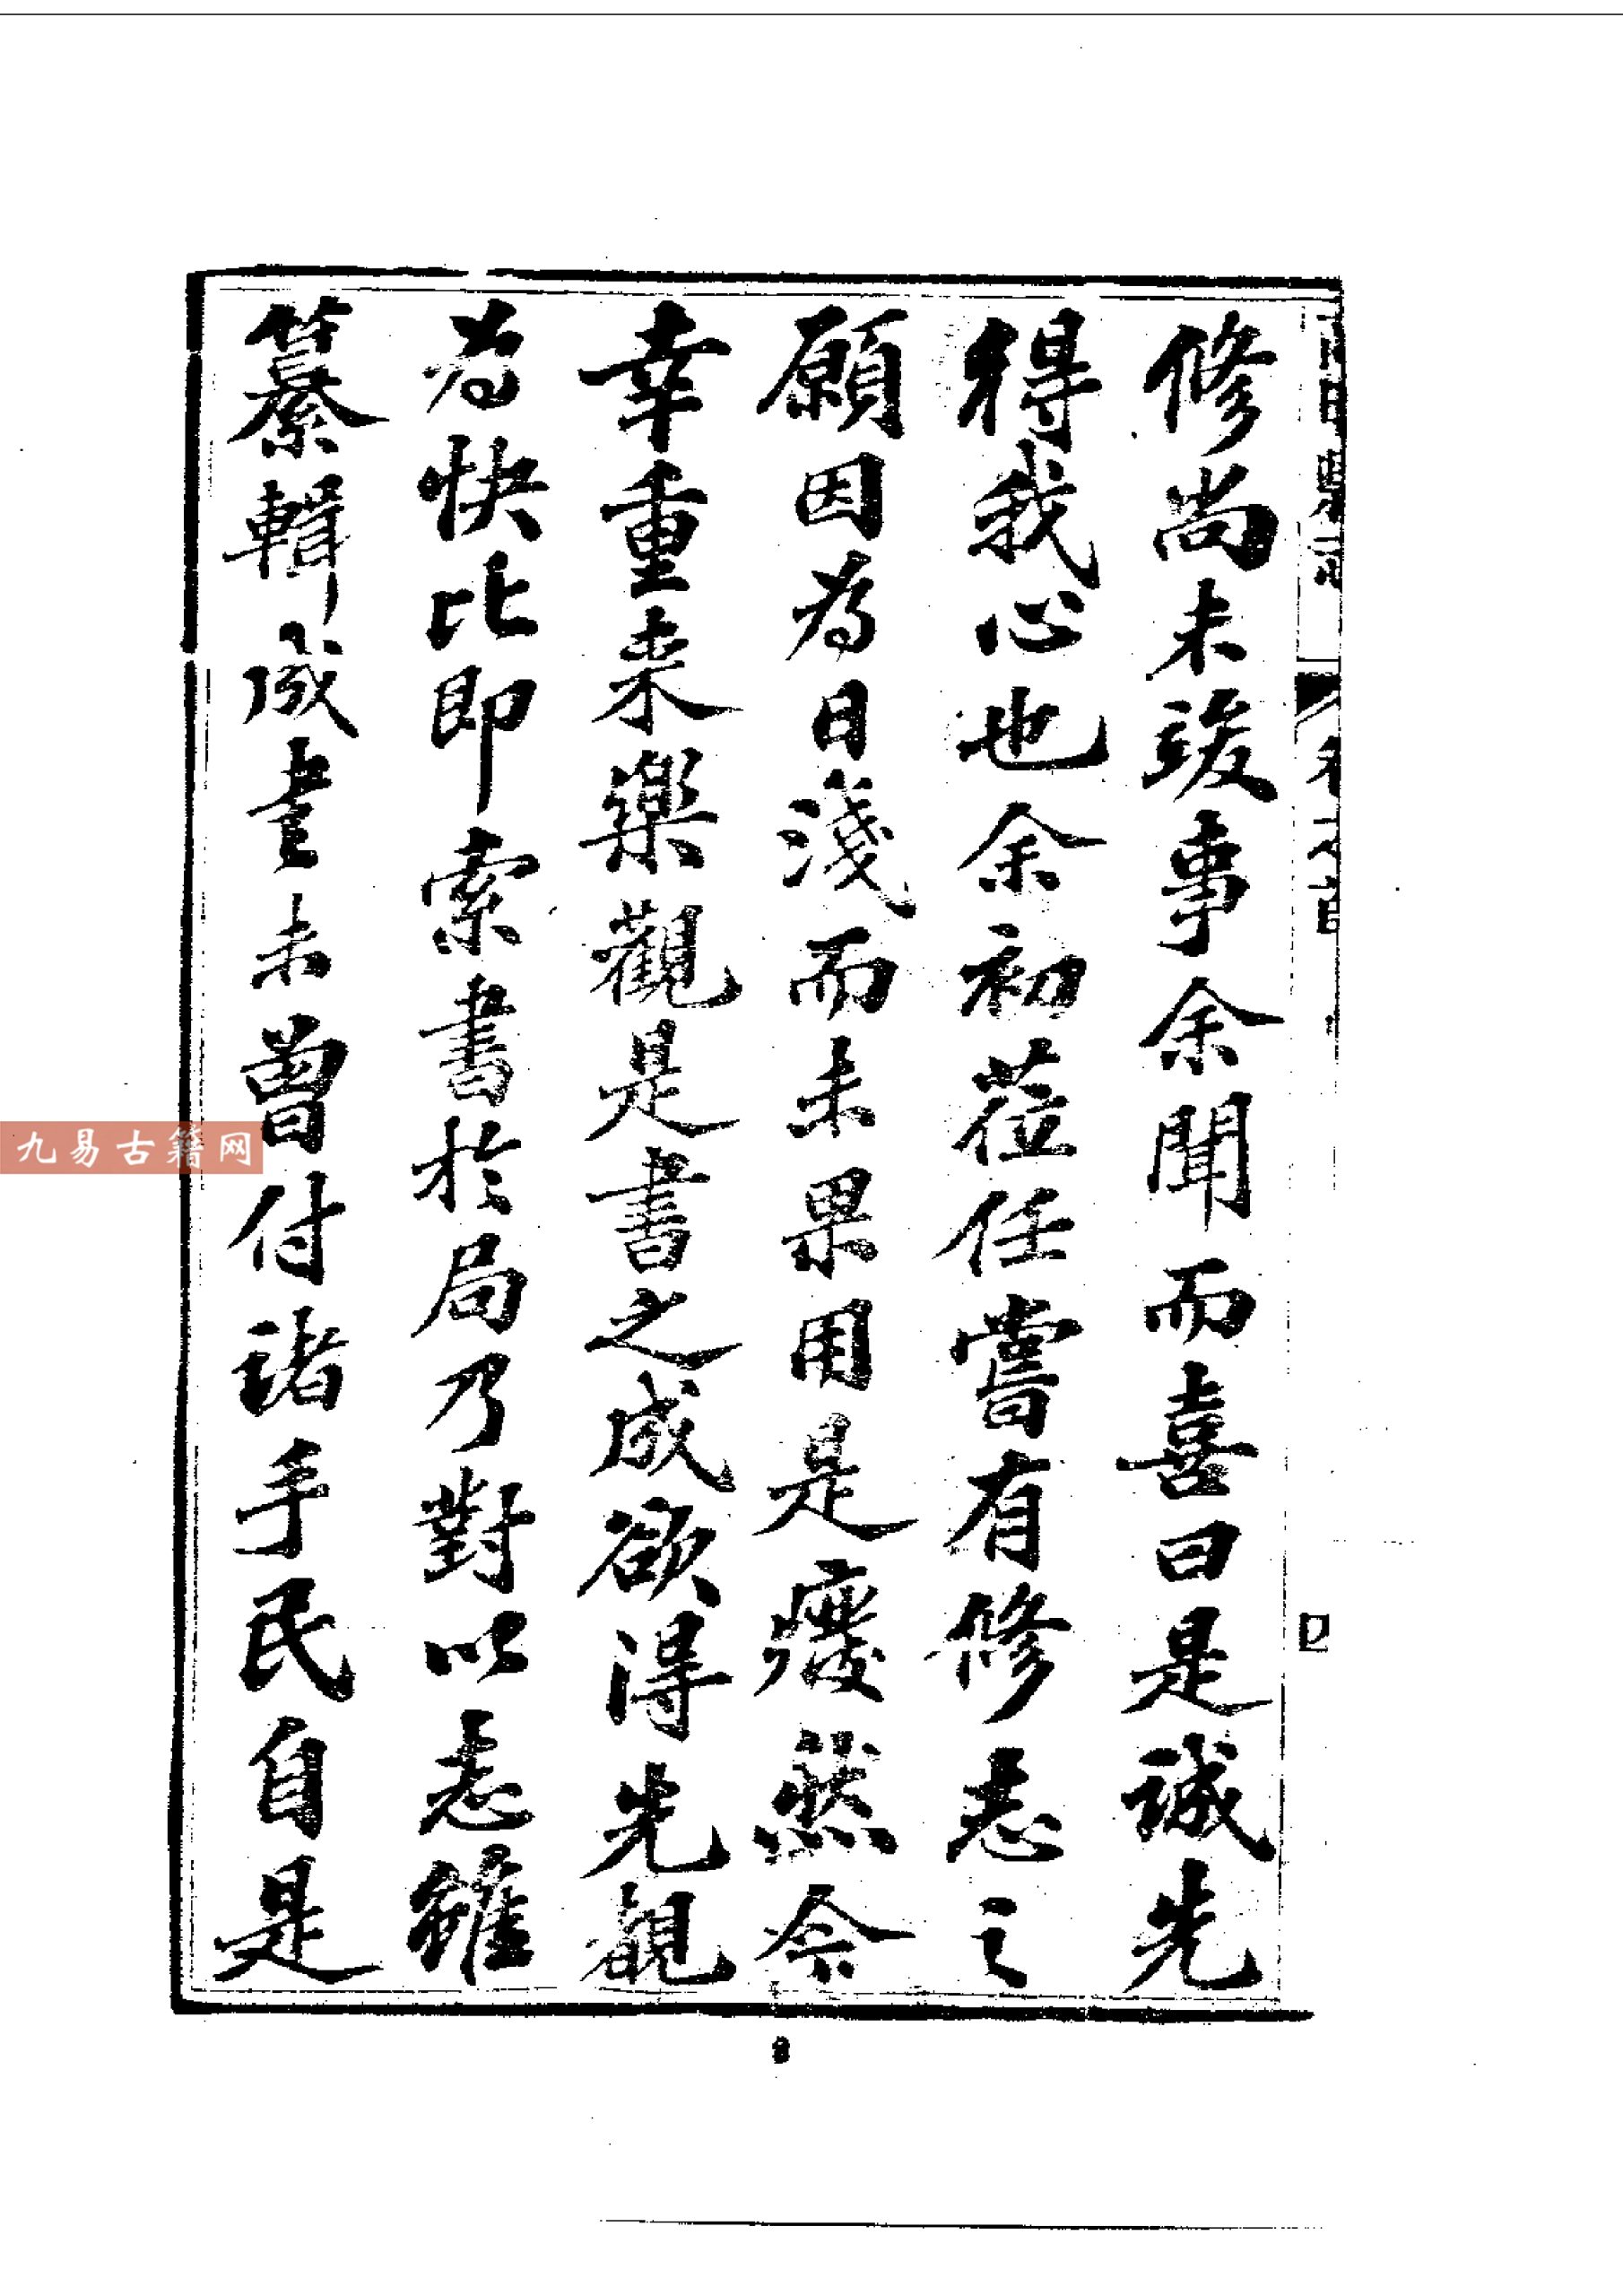 卷之首
四
修尚未竣事余聞而喜曰是誠先
得我心也余初蒞任嘗有修志之
願因為日淺而未果用是疚然今
幸重来樂觀是書之成欲得先覩
為快比即索書於局乃對以志雖
纂輯成書未曾付諸手民自是
九易古籍网
8